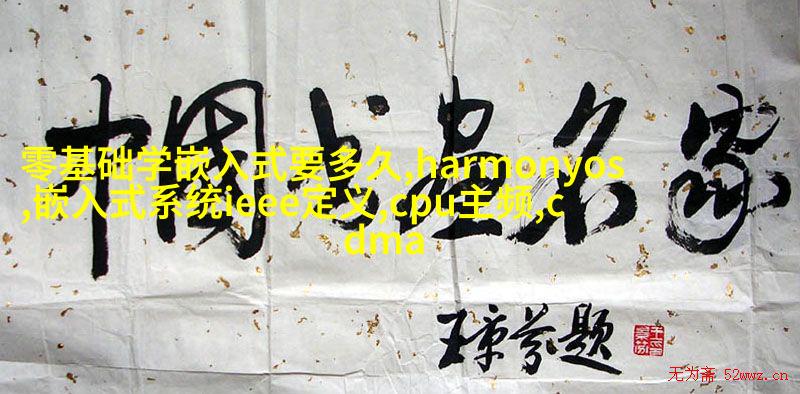 中国书画名家
零基础学嵌入式要多久,harmonyos
,嵌入式系统ieee定义,cpu主频,c
dma
王京芬题
无为斋 52wwz.cn